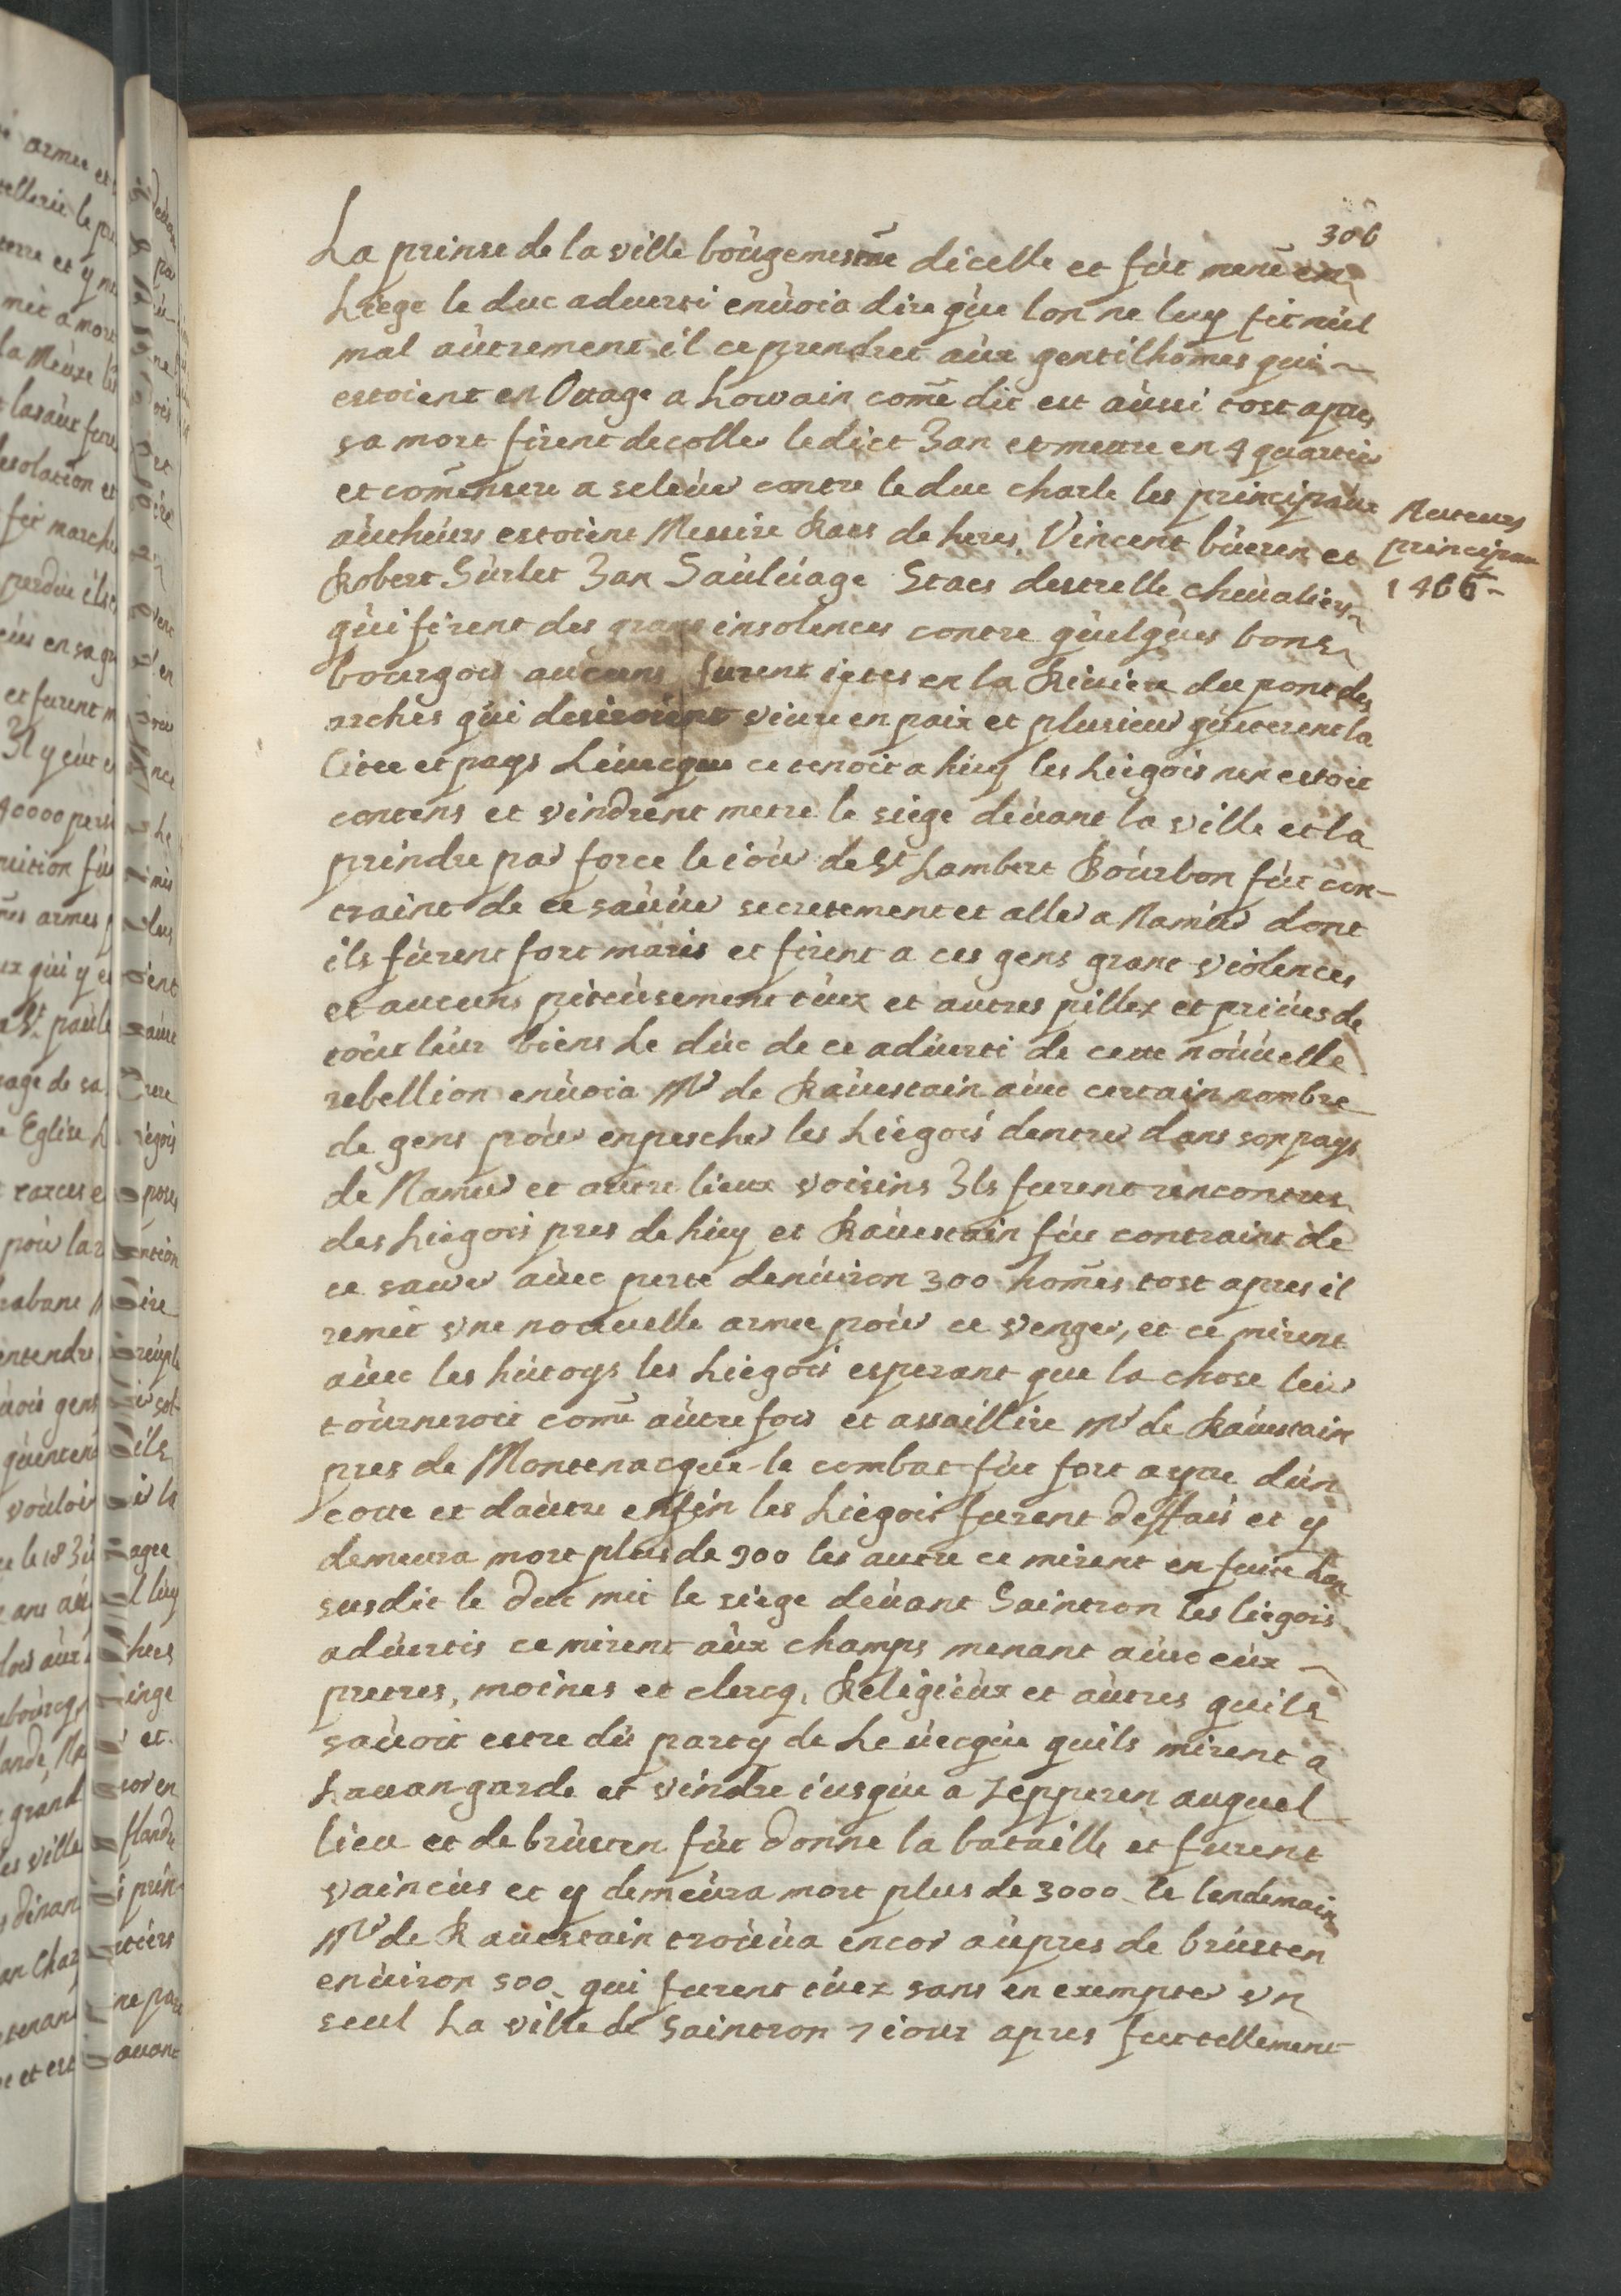 306
La prinse de la ville boùgemesme dicelle et fùt mene en
Liege le duc aduerti enùoia dire qùe lon ne luy fit nùl
mal aùtrement il ce prendret aùx gentilhom̃es qui
estoient en Ottage a Lowain com̃e dit est aùssi tost apres
sa mort firent decoller ledict Jan et mettre en 4 quartier
et com̃ensere a seleùer contre le duc charle les principaùx
aùcheùrs estoient Messire Raes de heres, Vincent bùeren et
Robert Sùrlet Jan Saùlùage Staes destrelle cheùaliers
qùi firent des grans insolences contre qùelqùes bons
bourgois aucuns furent ietes en la Riuiere du pont des
arches qùi desiroient viure en paix et plusieur qùiterent la
Citee et pays Leùecque ce tenoit a hùy les Liegois nen estoit
contens et vindrent metre le siege deùant la ville et la
prindre par force le ioùr de St Lambert Boùrbon fùt con-
traint de ce saùùer secretement et aller a Namùr dont
ils fùrent fort maris et firent a ces gens grant violences
et aucuns piteùsement tùez et autres pillez et priùes de
toùt leùr biens Le dùc de ce adùerti de cette noùùelle
rebellion enùoia Mr de Raùestain aùec certain nombre
de gens poùr enpescher les Liegois dentrer dans son pays
de Namur et autre lieux voisins Ils furent rencontres
des Liegois pres de hùy et Raùestain fùt contraint de
ce sauver aùec perte denùiron 300 hom̃es tost apres il
remit vne nouvelle armee poùr ce venger, et ce mirent
aùec les hùtoys les Liegois esperant que la chose leùr
toùrneroit com̃e aùtrefois et assaillire Mr de Raùestain
pres de Montenacque le combat fùt fort aypre dùn
cotte et daùtre enfin les Liegois furent deffais et y
demeura mort plus de 900 les autre ce mirent en fuitte Lan
susdit le duc mit le siege deùant Saintron les liegois
adùertis ce mirent aùx champs menant aùec eùx
pretres, moines et clercq, Religieùx et aùtres quils
saùoit estre dù party de Leùecqùe quils mirent a
Lauangarde et vindre iusqùe a Zepperen auquel
lieu et de brùsten fùt donne la bataille et furent
vaincùs et y demeùra mort plus de 3000 le lendemain
Mr de Rauestain troùùa encor aùpres de brùsten
enùiron 500 qui furent tùez sans en exempter vn
seul La ville de Saintron 7 iour apres fut tellement
principaux
1466